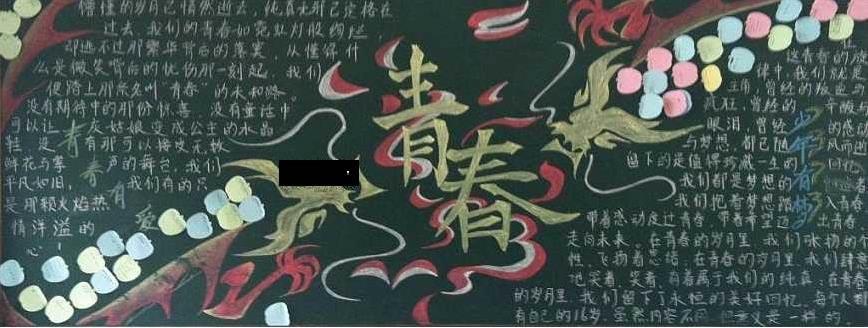 懵懂的岁月已悄然逝去,纯真
过去,我们的青春如霓虹灯般绚烂,
却逃不过那繁华背后的落寞,从懂得什
么是微笑背后的忧伤那一刻起,我们
便踏上那条名叫“青春”的
没有期待中的那份惊喜,没有童话中
可以让灰姑娘变成公主的水晶
鞋,是有那可以接受无数
鲜花与掌声的舞台,我们
平凡如旧,我们有的只
是那颗火焰热
情洋溢的
心!
青春有爱
青春
少年有梦
这青春的旋
律中,我们就是
主角,曾经的叛逆与
疯狂,曾经的
眼泪,曾经的感
与梦想,都已随风而逝
留下的是值得珍藏一生的回忆
我们都是梦想的
我们抱着梦想踏入青春
带着感动度过青春,带着希望迈出青春
走向未来。在青春的岁月里,我们张扬的
性,飞扬着思绪,在青春的岁月里我们肆意
地哭着,笑着,有着属于我们的纯真;在青春
的岁月里,我们留下了永恒的美好回忆,每个人都
有自己的16岁,虽然内容不同,但意义是一样的。